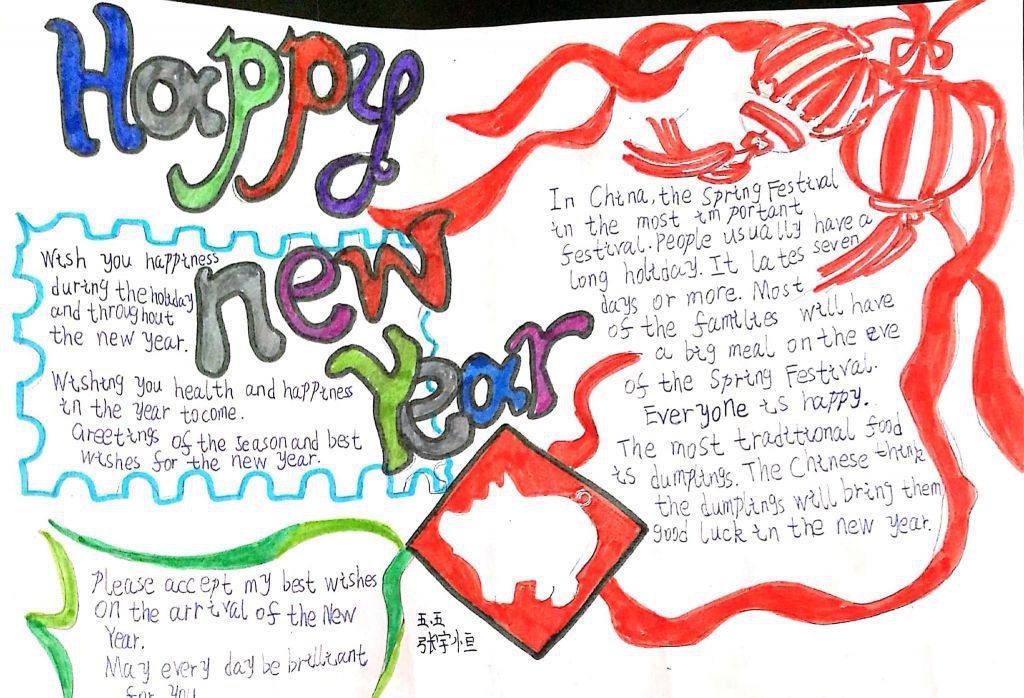 Happy
new
Year
Wish you happiness
during the holiday
and throughout
the new year.
Wishing you health and happiness
in the year to come.
Greetings of the season and best
wishes for the new year.
Please accept my best wishes
on the arrival of the New
Year.
May every day be brilliant
for you
In China, the Spring Festival
in the most important
festival. People usually have a
long holiday. It lates seven
days or more. Most
of the families will have
a big meal on the eve
of the Spring Festival.
Everyone is happy.
The most traditional food
is dumplings. The Chinese think
the dumplings will bring them
good luck in the new year.
五.五
张宇恒